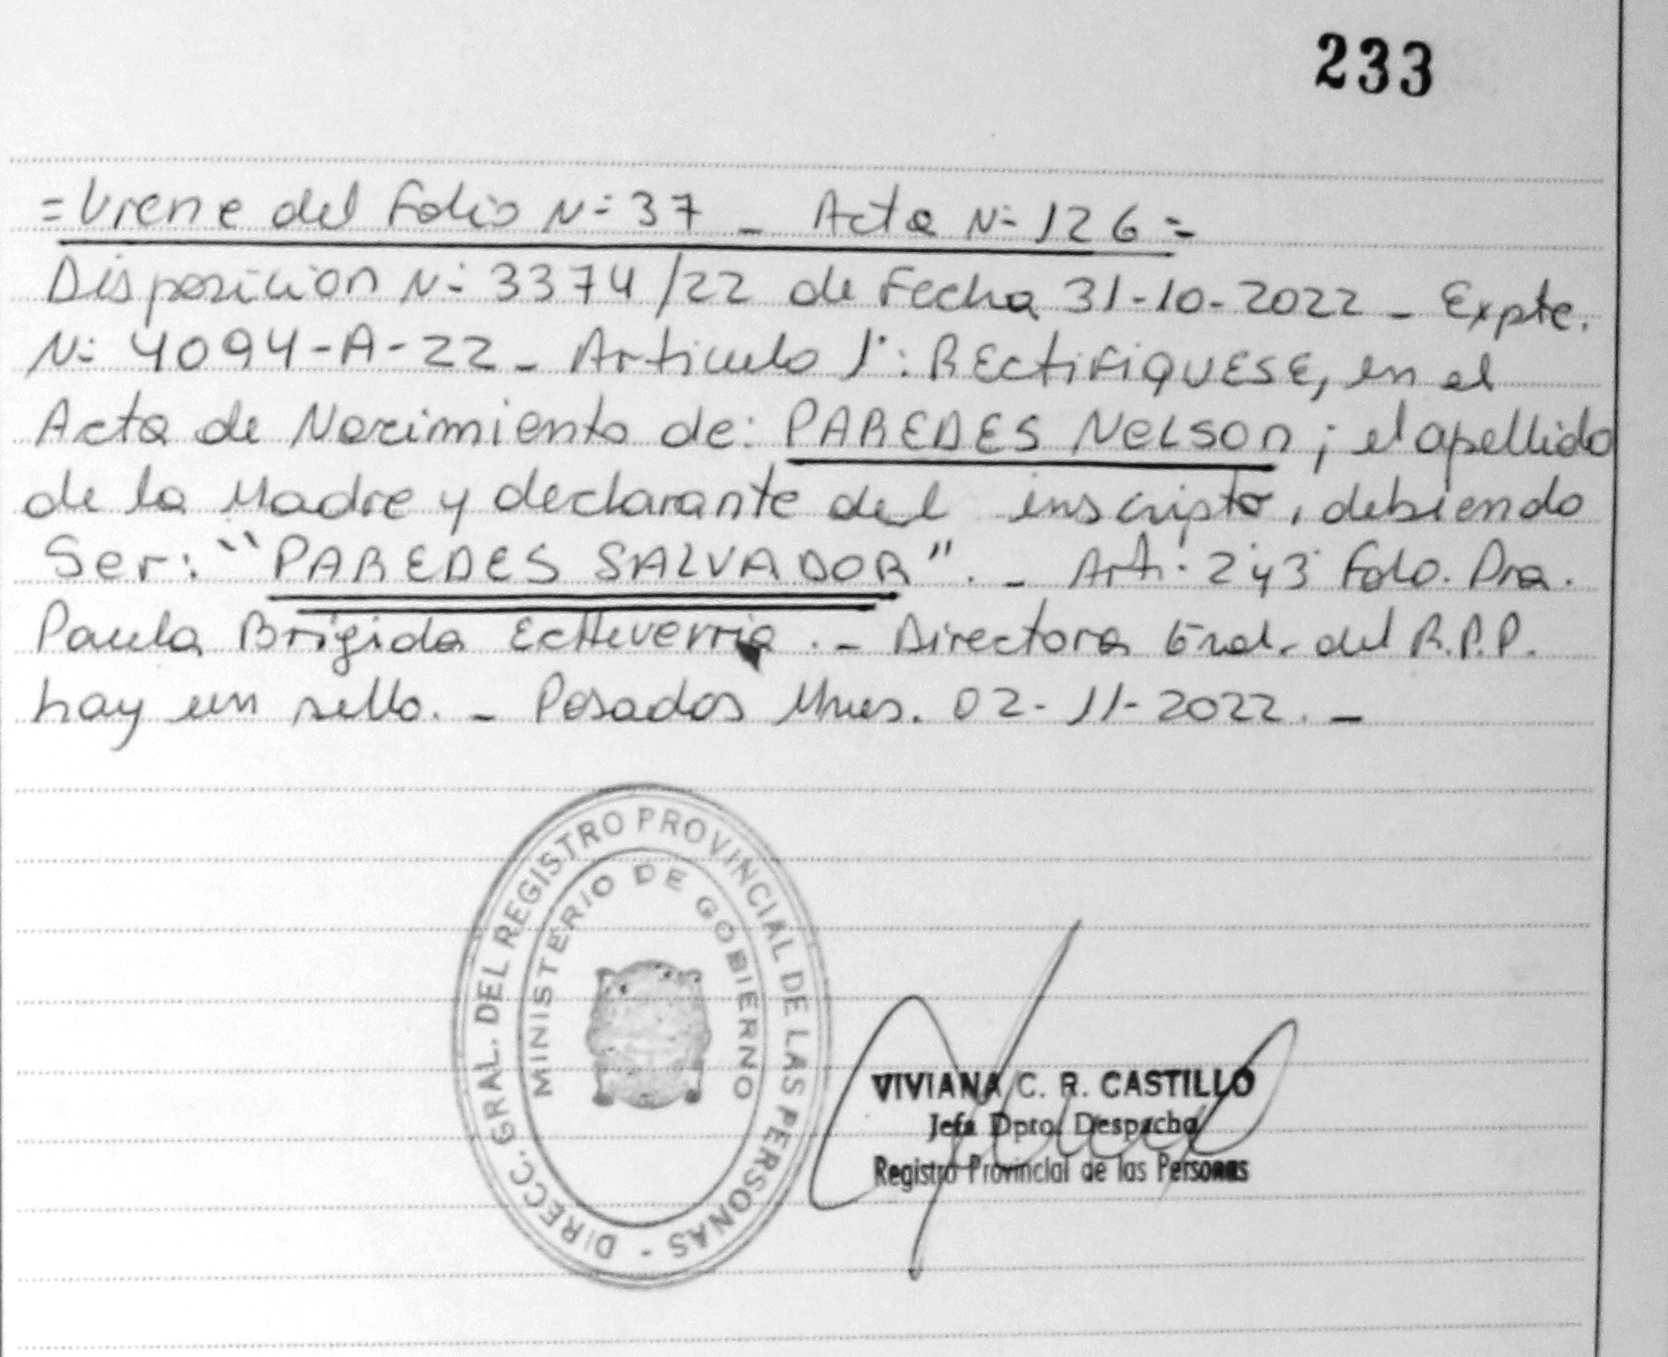 233
=Viene del Folio N: 37 _ Acta N: 126=
Disposicion N: 3374/22 de Fecha 31-10-2022 _ Expte.
N: 4094-A-22 _ Articulo 1°: RECtiFiQUESE, en el
Acta de Nacimiento de: PAREDES NELSON; el apellido
de la Madre y declarante del inscripto, debiendo
Ser: "PAREDES SALVADOR". _ Art. 2 y 3 Fdo. Dra.
Paula Brigida Echeverria. _ Directora Gral. del R.P.P.
hay un sello. _ Posadas Mnes. 02-11-2022. _
DIRECC. GRAL. DEL REGISTRO PROVINCIAL DE LAS PERSONAS -
MINISTERIO DE GOBIERNO
VIVIANA C. R. CASTILLO
Jefa Dpto. Despacho
Registro Provincial de las Personas